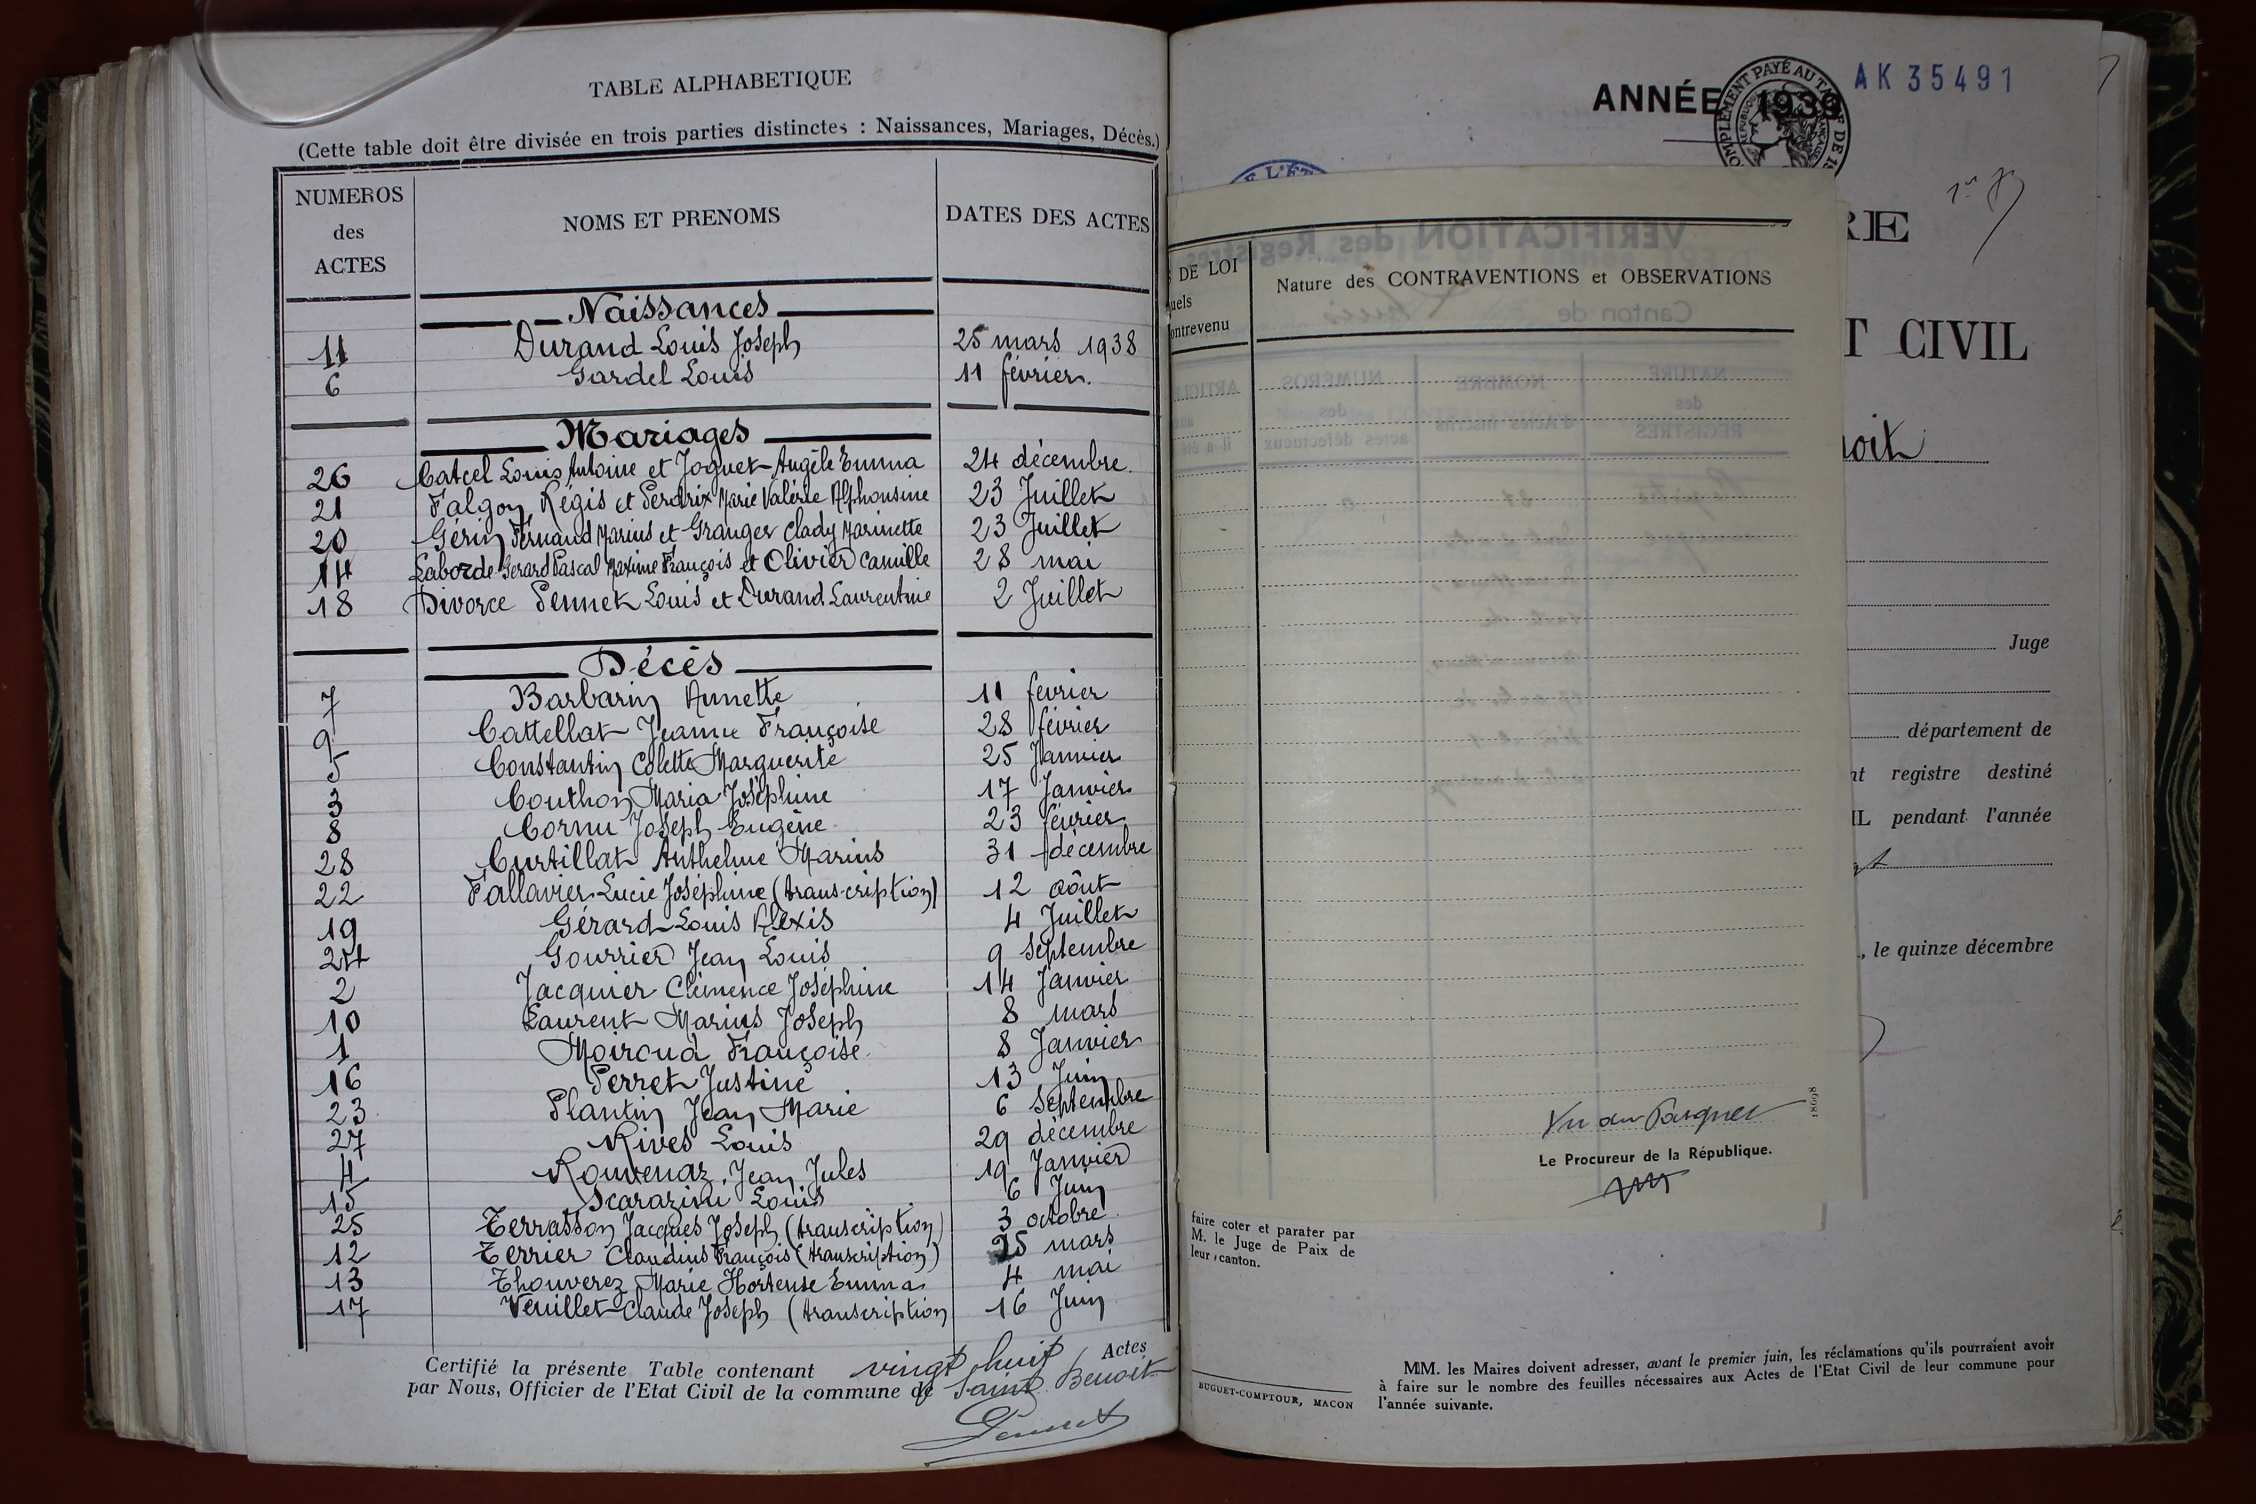 TABLE ALPHABETIQUE
(Cette table doit être divisée en trois parties distinctes : Naissances, Mariages, Décès.)
NUMEROS des ACTES NOMS ET PRENOMS DATES DES ACTES
Naissances
11 Durand Louis Joseph 25 mars 1938
6 Gardel Louis 11 février.
Mariages
26 Catcel Louis Antoine et Joguet Angèle Emma 24 décembre.
21 Falgon Régis et Perdrix Marie Valérie Alphonsine 23 Juillet
20 Gérin Fernand Marius et Granger Clady Marinette 23 Juillet
14 Laborde Gerard Pascal Maxime François et Olivier Camille 28 mai
18 Divorce Pennet Louis et Durand Laurentine 2 Juillet
Décès
7 Barbarin Annette 11 fevrier
9 Cattellat Jeanne Françoise 28 février
5 Constantin Colette Marguerite 25 Janvier
3 Couthon Maria Joséphine 17 Janvier
8 Cornu Joseph Eugène 23 février
28 Curtillat Anthelme Marius 31 décembre
22 Fallavier Lucie Joséphine (transcription) 12 aôut
19 Gérard Louis Alexis 4 Juillet
24 Gourrier Jean Louis 9 septembre
2 Jacquier Clémence Joséphine 14 Janvier
10 Laurent Marius Joseph 8 mars
1 Moiroud Françoise. 8 Janvier
16 Perret Justine 13 Juin
23 Plantin Jean Marie 6 septembre
27 Rives Louis 29 décembre
4 Rouvenaz Jean Jules 19 Janvier
15 Scarazini Louis 6 Juin
25 Terrasson Jacques Joseph (transcription) 3 octobre
12 Terrier Claudius François (transcription) 25 mars
13 Thouverez Marie Hortense Emma 4 mai
17 Veuillet Claude Joseph (transcription 16 Juin
Certifié la présente Table contenant vingt huit Actes
par Nous, Officier de l'Etat Civil de la commune de Saint Benoit
Pennet
ANNÉE 1939
AK 35491
RE
T CIVIL
noit
DE LOI
uels
ontrevenu
Nature des CONTRAVENTIONS et OBSERVATIONS
Juge
département de
nt registre destiné
IL pendant l'année
, le quinze décembre
Vu au Parquet
Le Procureur de la République.
18698
faire coter et parafer par
M. le Juge de Paix de
leur canton.
BUGUET-COMPTOUR, MACON
MM. les Maires doivent adresser, avant le premier juin, les réclamations qu'ils pourraient avoir
à faire sur le nombre des feuilles nécessaires aux Actes de l'Etat Civil de leur commune pour
l'année suivante.